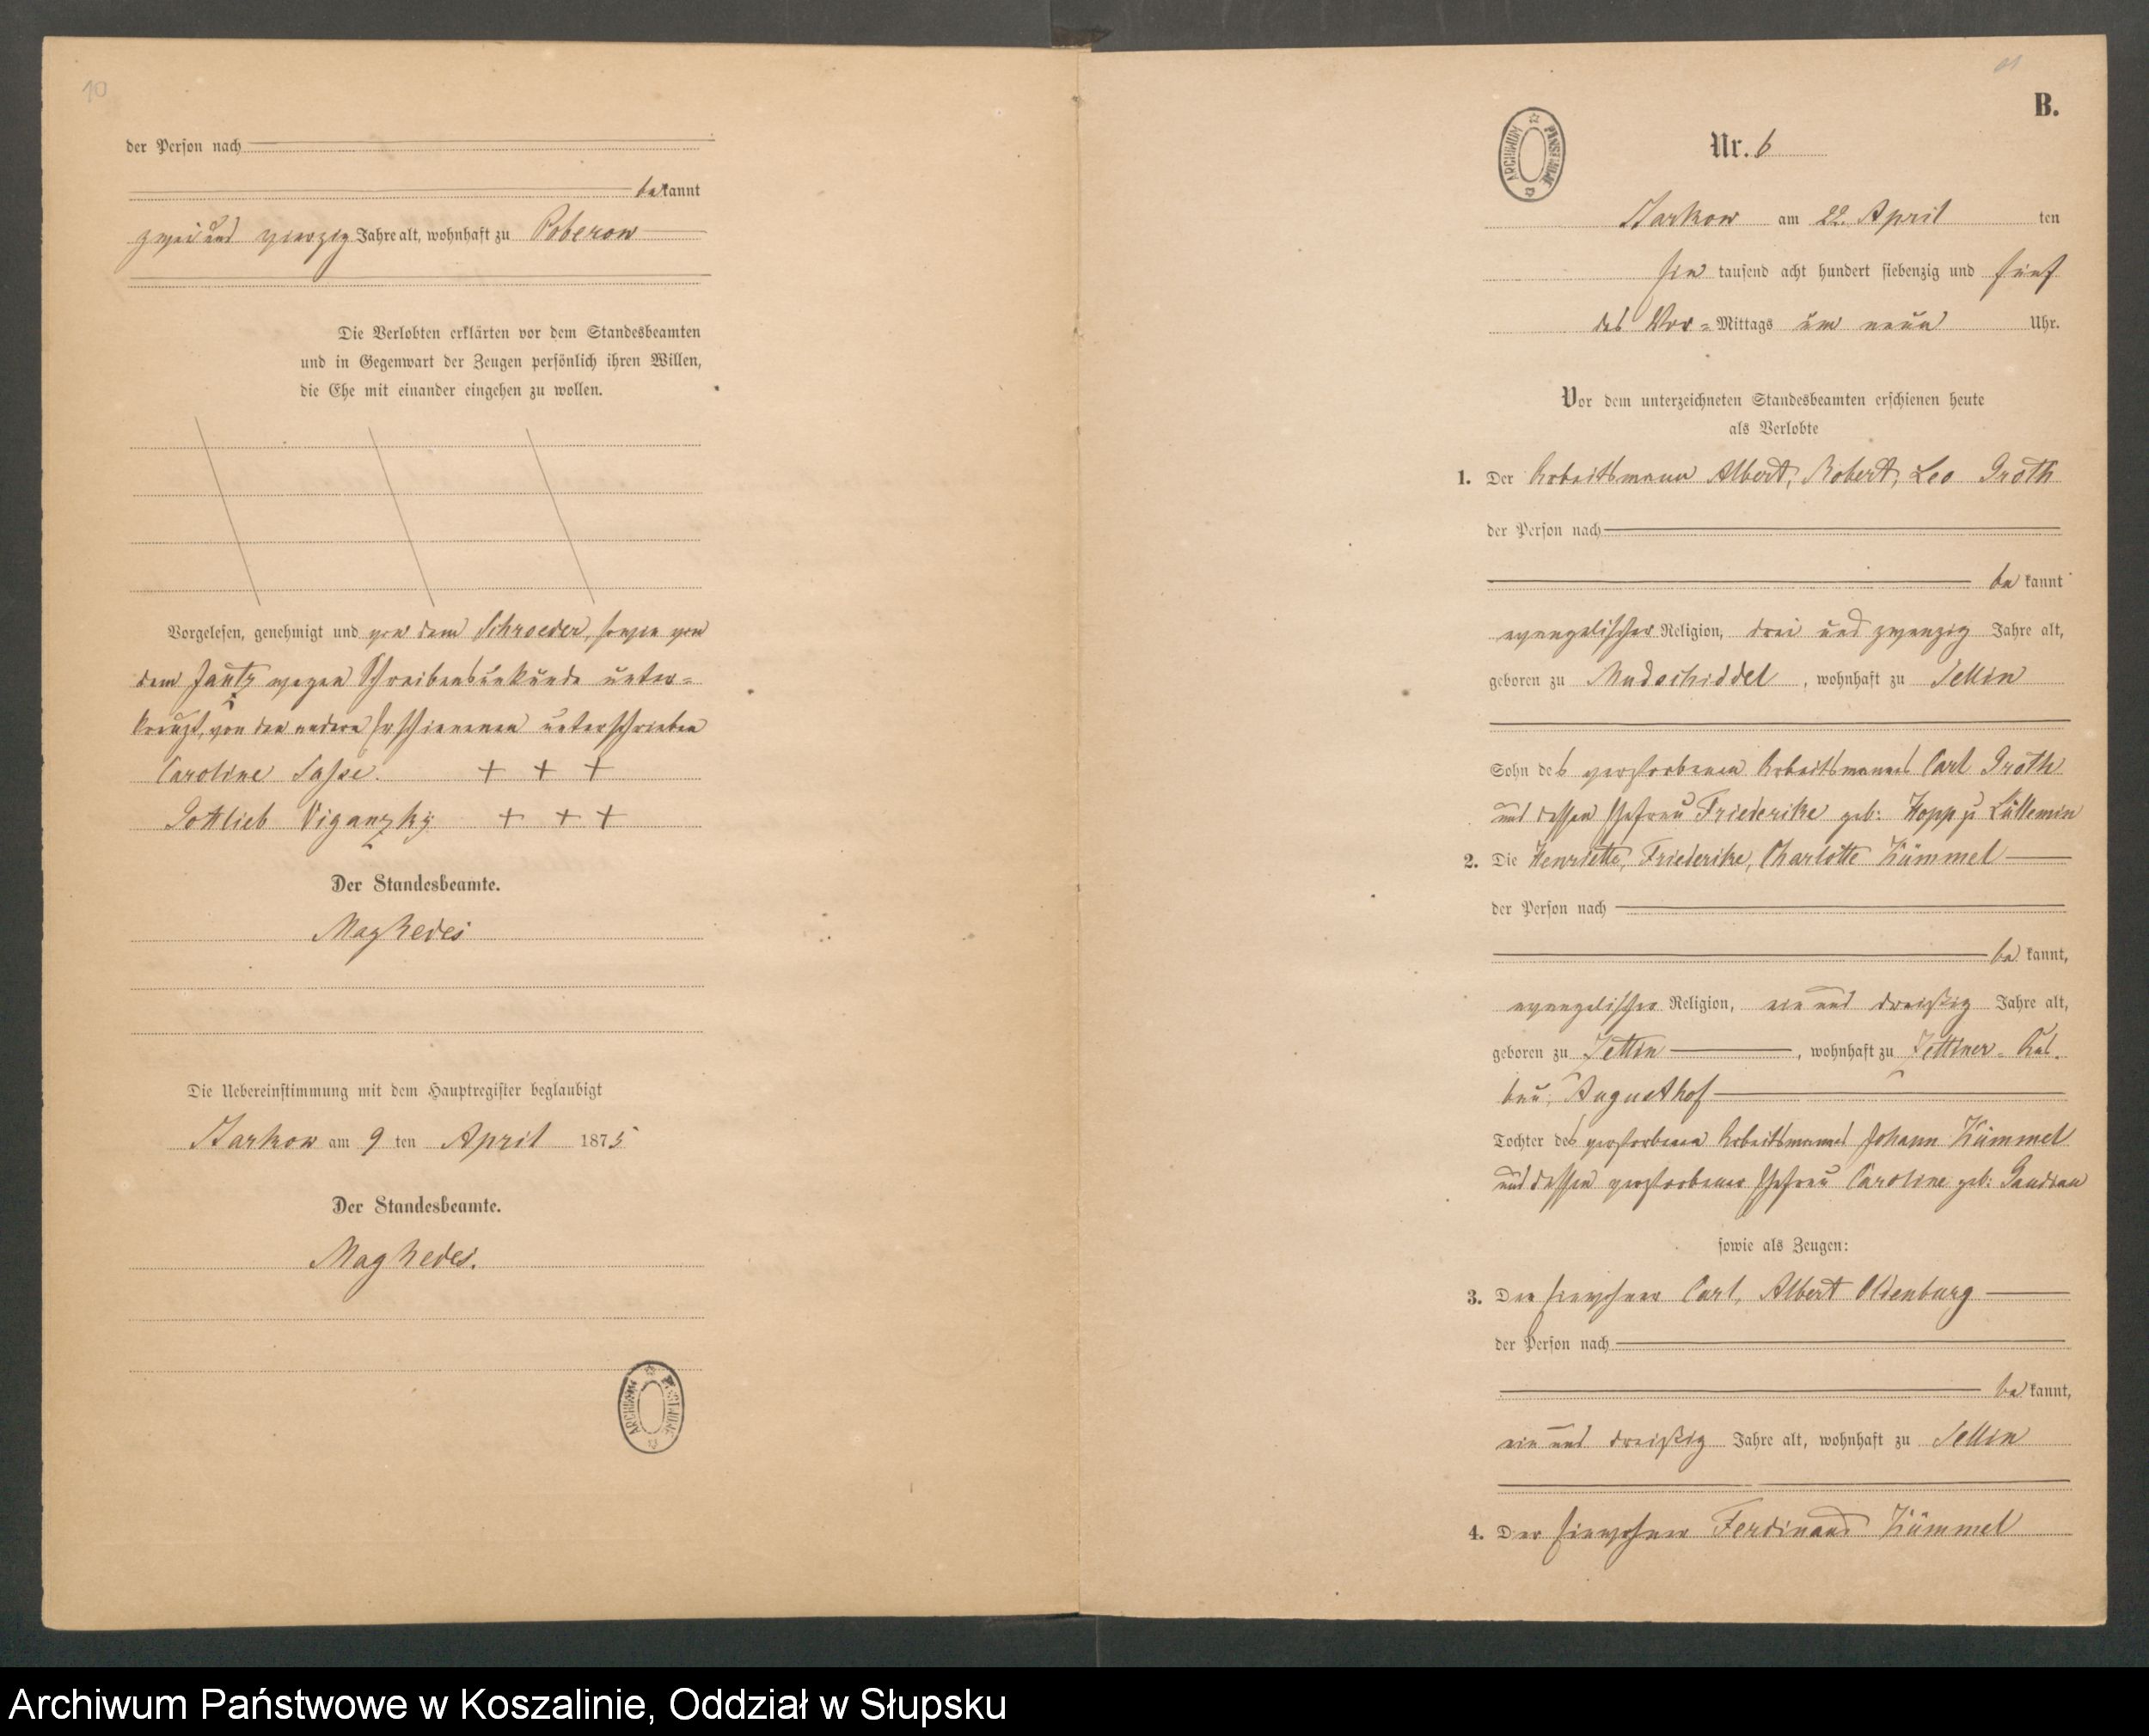 10
der Person nach
bekannt
zwei und vierzig Jahre alt, wohnhaft zu Poberow
Die Verlobten erklärten vor dem Standesbeamten
und in Gegenwart der Zeugen persönlich ihren Willen,
die Ehe mit einander eingehen zu wollen.
Vorgelesen, genehmigt und von dem Schroeder, sowie von
dem wegen Schreibensunkunde unter=
kreuzt, von den andern Erschienenen unterschrieben
Caroline Sasse. + + +
Gottlieb Viganzky + + +
Der Standesbeamte.
Die Uebereinstimmung mit dem Hauptregister beglaubigt
Starkow am 9 ten April 1875
Der Standesbeamte.
ARCHIWUM PAŃSTWOWE
B.
ARCHIWUM PAŃSTWOWE
Nr. 6
Starkow am 22. April ten
Ein tausend acht hundert siebenzig und fünf
des Vor=Mittags um neun Uhr.
Vor dem unterzeichneten Standesbeamten erschienen heute
als Verlobte
1. Der Arbeitsmann Albert, Robert, Leo Groth
der Person nach
be kannt
evangelischer Religion, drei und zwanzig Jahre alt,
geboren zu Mudschiddel, wohnhaft zu Sellin
Sohn des verstorbenen Arbeitsmannes Carl Groth
und dessen Ehefrau Friederike geb: Hopp z Lüllemin
2. Die Henriette, Friederike, Charlotte Kümmel
der Person nach
be kannt,
evangelischer Religion, ein und dreißig Jahre alt,
geboren zu Zettin, wohnhaft zu Zettiner-Aus.
bau, Augusthof
Tochter des verstorbenen Arbeitsmannes Johann Kümmel
und dessen verstorbener Ehefrau Caroline geb:
sowie als Zeugen:
3. Den Einwohner Carl, Albert Oldenburg
der Person nach
be kannt,
ein und dreißig Jahre alt, wohnhaft zu Sellin
4. Der Einwohner Ferdinand Kümmel
Archiwum Państwowe w Koszalinie, Oddział w Słupsku